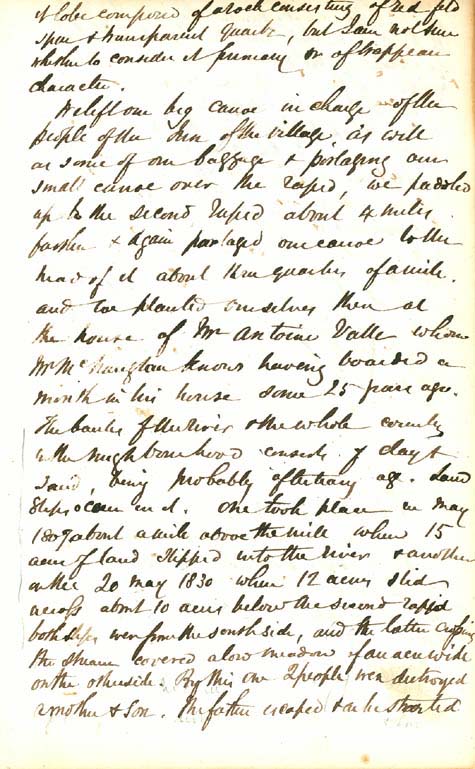 to be composed of a rock consisting of red feld
spar & transparent quartz, but I am not sure
whether to consider it primary or of trappean
character.
We left our big canoe in charge of the
people of the Inn of the village, as well
as some of our baggage & portaging our
small canoe over the rapid, we paddled
up to the second rapid about 4 miles
farther & again portaged our canoe to the
head of it about three quarters of a mile.
and we planted ourselves then at
the house of Mr Antoine Valle whom
Mr McNaughton knows having boarded a
month in his house some 25 years ago.
The banks of the river & the whole country
in the neighbourhood consists of clay &
sand, being probably of tertiary age. Land
slips occur in it. One took place in May
1807 about a mile above the mill when 15
acres of land slipped into the river & another
on the 20 May 1830 when 12 acres slid
across about 10 acres below the second rapid
both slips were from the south side, and the latter crossing
the stream covered a low meadow of an acre wide
on the other side. By this one 2 people were destroyed
a mother & son. The father escaped & as he started